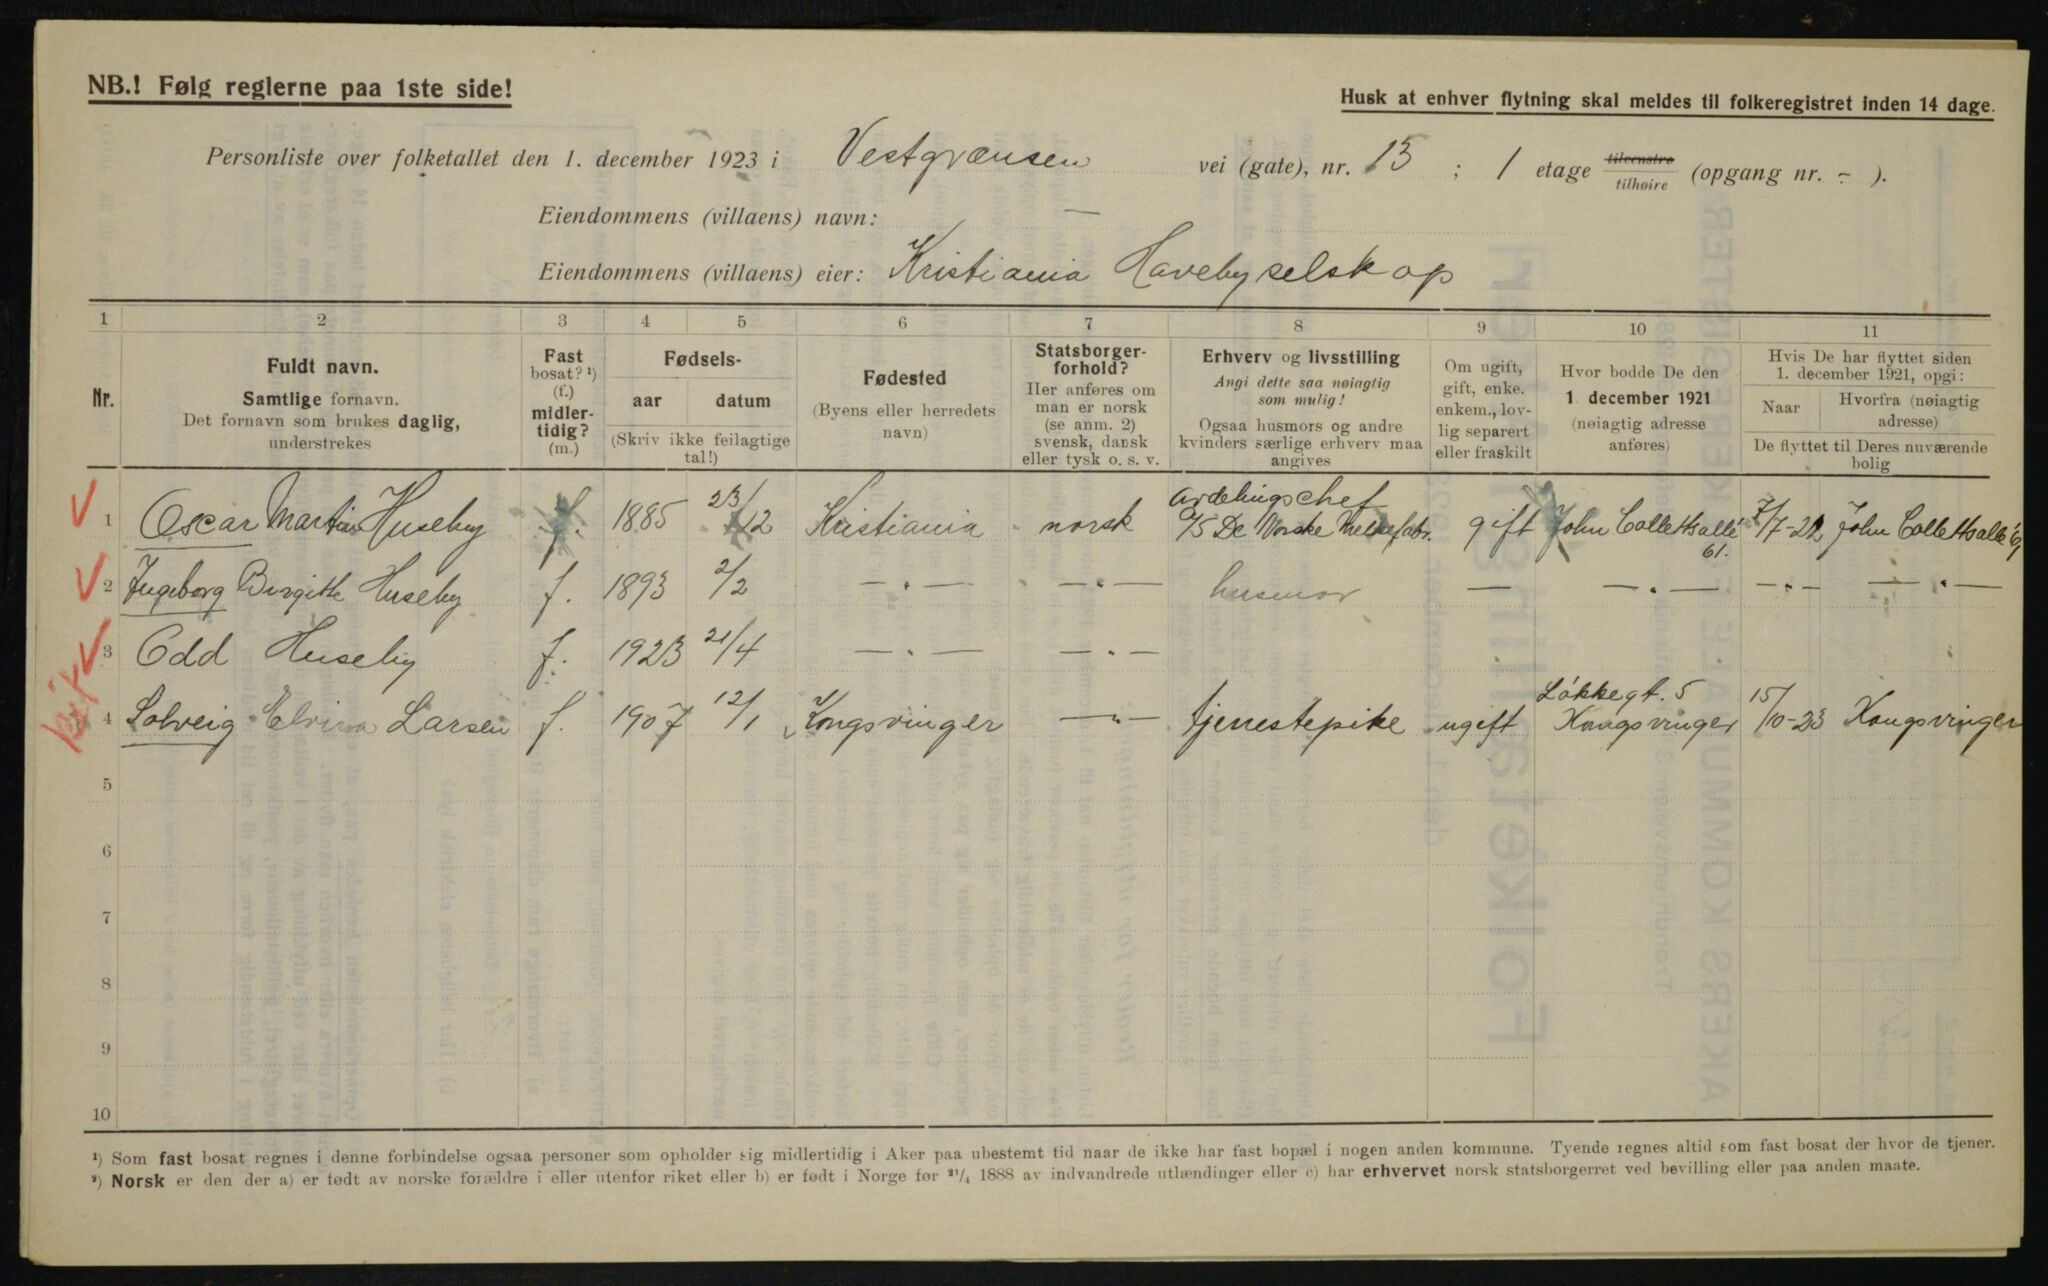 NB.! Følg reglerne paa 1ste side!
Husk at enhver flytning skal meldes til folkeregistret inden 14 dage.
Personliste over folketallet den 1. december 1923 i Vestgrænsen vei (gate), nr. 13 ; 1 etage tilvenstre tilhøire (opgang nr. - ).
Eiendommens (villaens) navn: —
Eiendommens (villaens) eier: Kristiania Havebyselskap
1 2 3 4 5 6 7 8 9 10 11
Nr.
Fuldt navn.
Samtlige fornavn.
Det fornavn som brukes daglig,
understrekes
Fast
bosat? ¹)
(f.)
midler-
tidig?
(m.)
Fødsels-
aar datum
(Skriv ikke feilagtige
tal!)
Fødested
(Byens eller herredets
navn)
Statsborger-
forhold?
Her anføres om
man er norsk
(se anm. 2)
svensk, dansk
eller tysk o. s. v.
Erhverv og livsstilling
Angi dette saa nøiagtig
som mulig!
Ogsaa husmors og andre
kvinders særlige erhverv maa
angives
Om ugift,
gift, enke.
enkem., lov-
lig separert
eller fraskilt
Hvor bodde De den
1. december 1921
(nøiagtig adresse
anføres)
Hvis De har flyttet siden
1. december 1921, opgi:
Naar
Hvorfra (nøiagtig
adresse)
De flyttet til Deres nuværende
bolig
1 Oscar Martin Huseby f. 1885 23/12 Kristiania norsk avdelingschef A/S De Norske Melkefabr. gift John Collettsallé 61. 7/7-22 John Collettsallé 61
2 Ingeborg Birgitte Huseby f. 1893 2/2 — „ — — „ — husmor — — „ — — „ — — „ —
3 Odd Huseby f. 1923 21/4 — „ — — „ —
4 Solveig Elvira Larsen f. 1907 12/1 Kongsvinger — „ — tjenestepike ugift Løkkegt. 5 Kongsvinger 15/10-23 Kongsvinger
5
6
7
8
9
10
¹) Som fast bosat regnes i denne forbindelse ogsaa personer som opholder sig midlertidig i Aker paa ubestemt tid naar de ikke har fast bopæl i nogen anden kommune. Tyende regnes altid som fast bosat der hvor de tjener.
²) Norsk er den der a) er født av norske forældre i eller utenfor riket eller b) er født i Norge før ²¹/₄ 1888 av indvandrede utlændinger eller c) har erhvervet norsk statsborgerret ved bevilling eller paa anden maate.